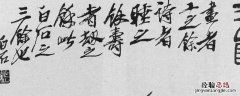 畫者
工之餘
詩者
睡之
餘壽
者劫之
餘此
白石之
三餘也
白石